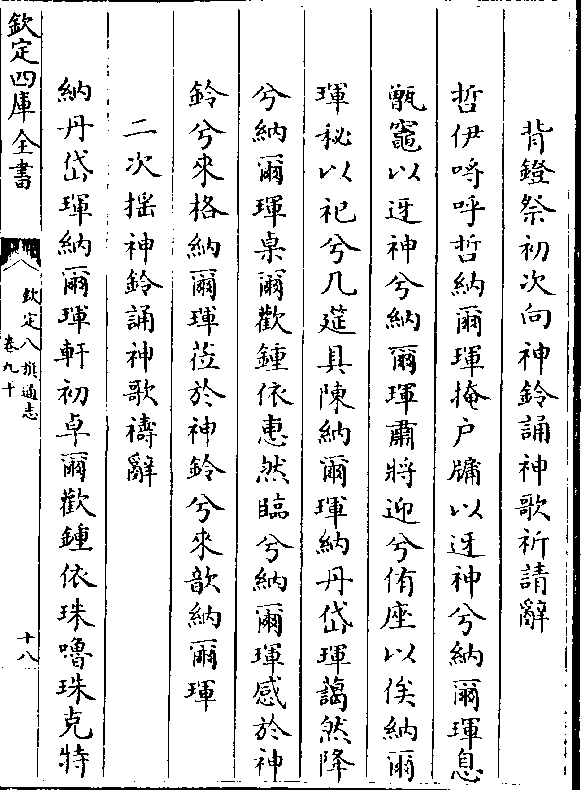 背鐙祭初次向神鈴誦神歌祈請辭
哲伊呼呼哲納爾琿掩户牖以迓神兮納爾琿息
甑竈以迓神兮納爾琿肅將迎兮侑座以俟納爾
琿秘以祀兮几筵具陳納爾琿納丹岱琿藹然降
兮納爾琿卓爾歡鍾依惠然臨兮納爾琿感於神
鈴兮來格納爾琿莅於神鈴兮來歆納爾琿
二次摇神鈴誦神歌禱辭
納丹岱琿納爾琿軒初卓爾歡鍾依珠嚕珠克特
欽定四庫全書
欽定八旗通志
卷九十
十八